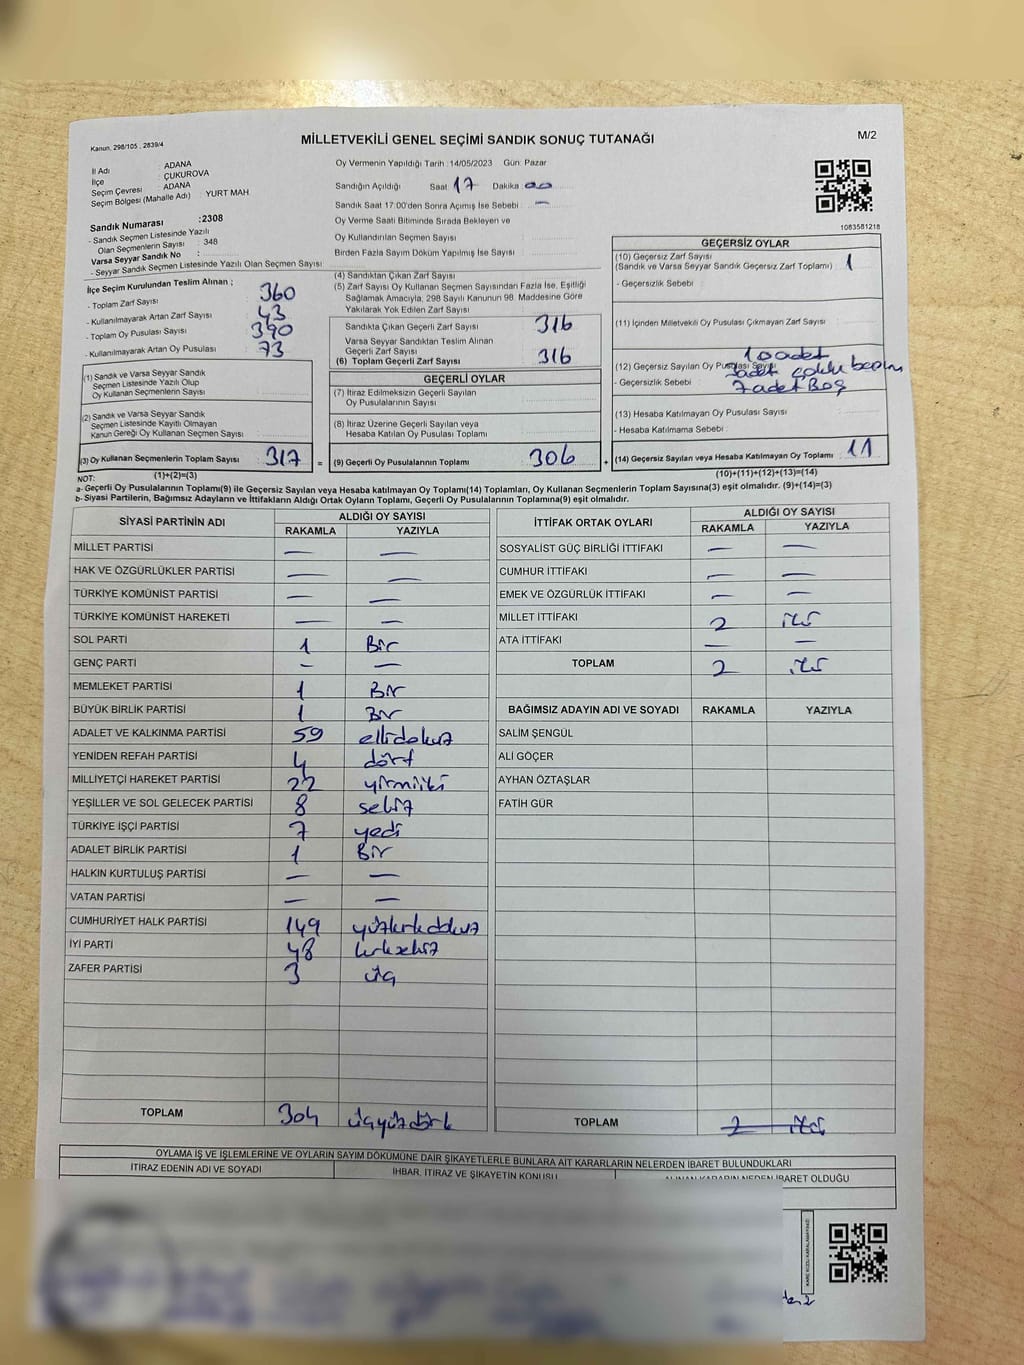 MİLLETVEKİLİ GENEL SEÇİMİ SANDIK SONUÇ TUTANAĞI
M/2
Kanun, 298/105 , 2839/4
İl Adı : ADANA
İlçe : ÇUKUROVA
Seçim Çevresi : ADANA
Seçim Bölgesi (Mahalle Adı) : YURT MAH
Sandık Numarası :2308
- Sandık Seçmen Listesinde Yazılı
Olan Seçmenlerin Sayısı : 348
Varsa Seyyar Sandık No :
- Seyyar Sandık Seçmen Listesinde Yazılı Olan Seçmen Sayısı
Oy Vermenin Yapıldığı Tarih :14/05/2023 Gün: Pazar
Sandığın Açıldığı Saat 17 Dakika 00
Sandık Saat 17:00'den Sonra Açımış İse Sebebi : —
Oy Verme Saati Bitiminde Sırada Bekleyen ve
Oy Kullandırılan Seçmen Sayısı
Birden Fazla Sayım Döküm Yapılmış İse Sayısı
1083581218
İlçe Seçim Kurulundan Teslim Alınan ;
- Toplam Zarf Sayısı 360
- Kullanılmayarak Artan Zarf Sayısı 43
- Toplam Oy Pusulası Sayısı 390
- Kullanılmayarak Artan Oy Pusulası 73
(1) Sandık ve Varsa Seyyar Sandık
Seçmen Listesinde Yazılı Olup
Oy Kullanan Seçmenlerin Sayısı
(2) Sandık ve Varsa Seyyar Sandık
Seçmen Listesinde Kayıtlı Olmayan
Kanun Gereği Oy Kullanan Seçmen Sayısı
(3) Oy Kullanan Seçmenlerin Toplam Sayısı 317 =
(1)+(2)=(3)
(4) Sandıktan Çıkan Zarf Sayısı
(5) Zarf Sayısı Oy Kullanan Seçmen Sayısından Fazla İse, Eşitliği
Sağlamak Amacıyla, 298 Sayılı Kanunun 98. Maddesine Göre
Yakılarak Yok Edilen Zarf Sayısı
Sandıkta Çıkan Geçerli Zarf Sayısı 316
Varsa Seyyar Sandıktan Teslim Alınan
Geçerli Zarf Sayısı
(6) Toplam Geçerli Zarf Sayısı 316
GEÇERLİ OYLAR
(7) İtiraz Edilmeksizin Geçerli Sayılan
Oy Pusulalarının Sayısı
(8) İtiraz Üzerine Geçerli Sayılan veya
Hesaba Katılan Oy Pusulası Toplamı
(9) Geçerli Oy Pusulalarının Toplamı 306 +
GEÇERSİZ OYLAR
(10) Geçersiz Zarf Sayısı
(Sandık ve Varsa Seyyar Sandık Geçersiz Zarf Toplamı) : 1
- Geçersizlik Sebebi :
(11) İçinden Milletvekili Oy Pusulası Çıkmayan Zarf Sayısı
10 adet
(12) Geçersiz Sayılan Oy Pusulası Sayısı
- Geçersizlik Sebebi : 7 adet Boş
(13) Hesaba Katılmayan Oy Pusulası Sayısı
- Hesaba Katılmama Sebebi :
(14) Geçersiz Sayılan veya Hesaba Katılmayan Oy Toplamı 11
(10)+(11)+(12)+(13)=(14)
NOT:
a- Geçerli Oy Pusulalarının Toplamı(9) ile Geçersiz Sayılan veya Hesaba katılmayan Oy Toplamı(14) Toplamları, Oy Kullanan Seçmenlerin Toplam Sayısına(3) eşit olmalıdır. (9)+(14)=(3)
b- Siyasi Partilerin, Bağımsız Adayların ve İttifakların Aldığı Ortak Oyların Toplamı, Geçerli Oy Pusulalarının Toplamına(9) eşit olmalıdır.
SİYASİ PARTİNİN ADI ALDIĞI OY SAYISI
RAKAMLA YAZIYLA
MİLLET PARTİSİ — —
HAK VE ÖZGÜRLÜKLER PARTİSİ — —
TÜRKİYE KOMÜNİST PARTİSİ — —
TÜRKİYE KOMÜNİST HAREKETİ — —
SOL PARTİ 1 Bir
GENÇ PARTİ — —
MEMLEKET PARTİSİ 1 Bir
BÜYÜK BİRLİK PARTİSİ 1 Bir
ADALET VE KALKINMA PARTİSİ 59 ellidokuz
YENİDEN REFAH PARTİSİ 4 dört
MİLLİYETÇİ HAREKET PARTİSİ 22 yirmiiki
YEŞİLLER VE SOL GELECEK PARTİSİ 8 sekiz
TÜRKİYE İŞÇİ PARTİSİ 7 yedi
ADALET BİRLİK PARTİSİ 1 Bir
HALKIN KURTULUŞ PARTİSİ — —
VATAN PARTİSİ — —
CUMHURİYET HALK PARTİSİ 149 yüzkırkdokuz
İYİ PARTİ 48 kırksekiz
ZAFER PARTİSİ 3 üç
TOPLAM 304 üçyüzdört
İTTİFAK ORTAK OYLARI ALDIĞI OY SAYISI
RAKAMLA YAZIYLA
SOSYALİST GÜÇ BİRLİĞİ İTTİFAKI — —
CUMHUR İTTİFAKI — —
EMEK VE ÖZGÜRLÜK İTTİFAKI — —
MİLLET İTTİFAKI 2 iki
ATA İTTİFAKI — —
TOPLAM 2 iki
BAĞIMSIZ ADAYIN ADI VE SOYADI RAKAMLA YAZIYLA
SALİM ŞENGÜL
ALİ GÖÇER
AYHAN ÖZTAŞLAR
FATİH GÜR
TOPLAM 2 iki
OYLAMA İŞ VE İŞLEMLERİNE VE OYLARIN SAYIM DÖKÜMÜNE DAİR ŞİKAYETLERLE BUNLARA AİT KARARLARIN NELERDEN İBARET BULUNDUKLARI
İTİRAZ EDENİN ADI VE SOYADI İHBAR, İTİRAZ VE ŞİKAYETİN KONUSU ALINAN KARARIN NEDEN İBARET OLDUĞU